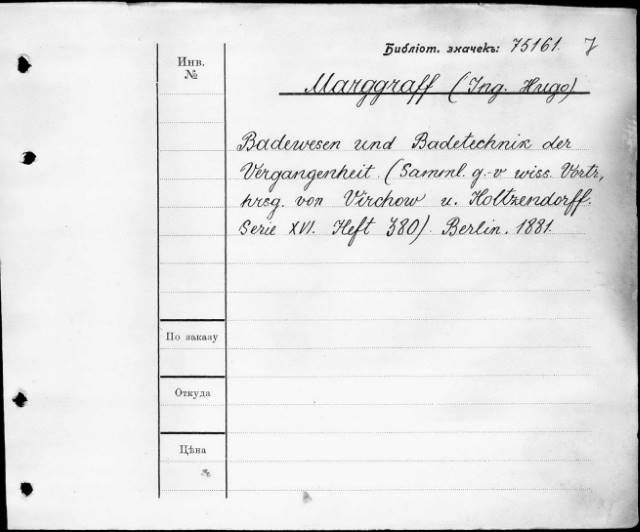 Библіот. значекъ: 75161. J
Инв.
№
Marggraff (Ing. Hugo)
Badewesen und Badetechnik der
Vergangenheit. (Samml. g.-v wiss. Vortr,
hrsg. von Virchow u. Holtzendorff.
Serie XVI. Heft 380) Berlin. 1881.
По заказу
Откуда
Цѣна